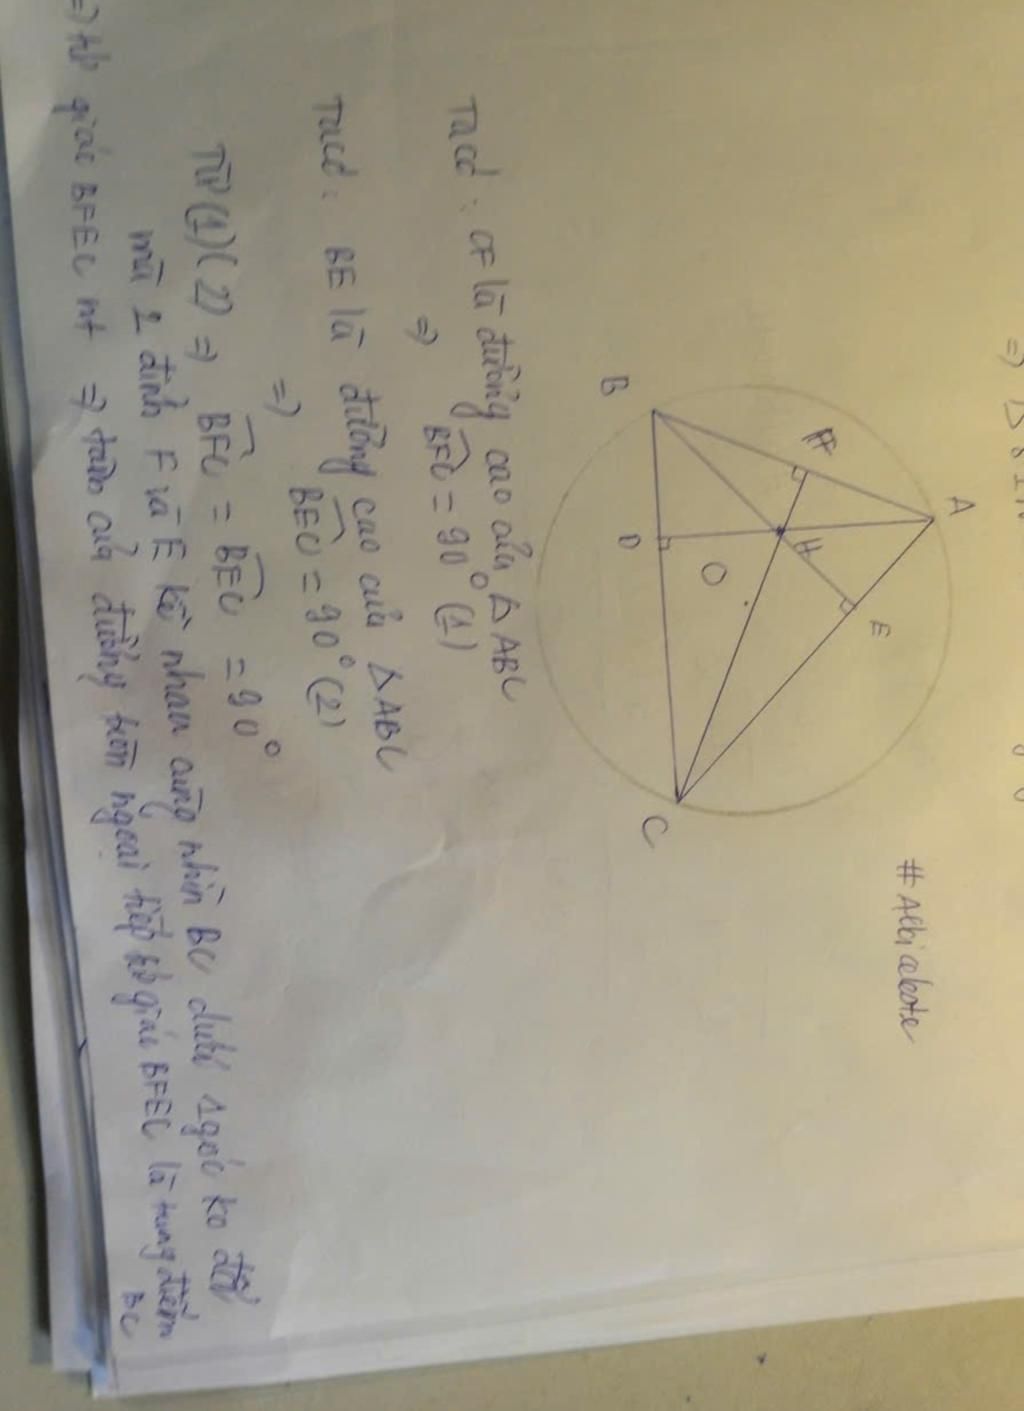 =) Δ
# Albicelate
A
F
E
H
B
D
O
C
Ta có : CF là đường cao của Δ ABC
=) BFC = 90° (1)
Ta có : BE là đường cao của Δ ABC
=) BEC = 90° (2)
Từ (1) (2) => BFC = BEC = 90°
mà 2 đỉnh F và E kề nhau cùng nhìn BC dưới 1 góc ko đổi
=) tứ giác BFEC nt => tâm của đường tròn ngoại tiếp tứ giác BFEC là trung điểm
BC